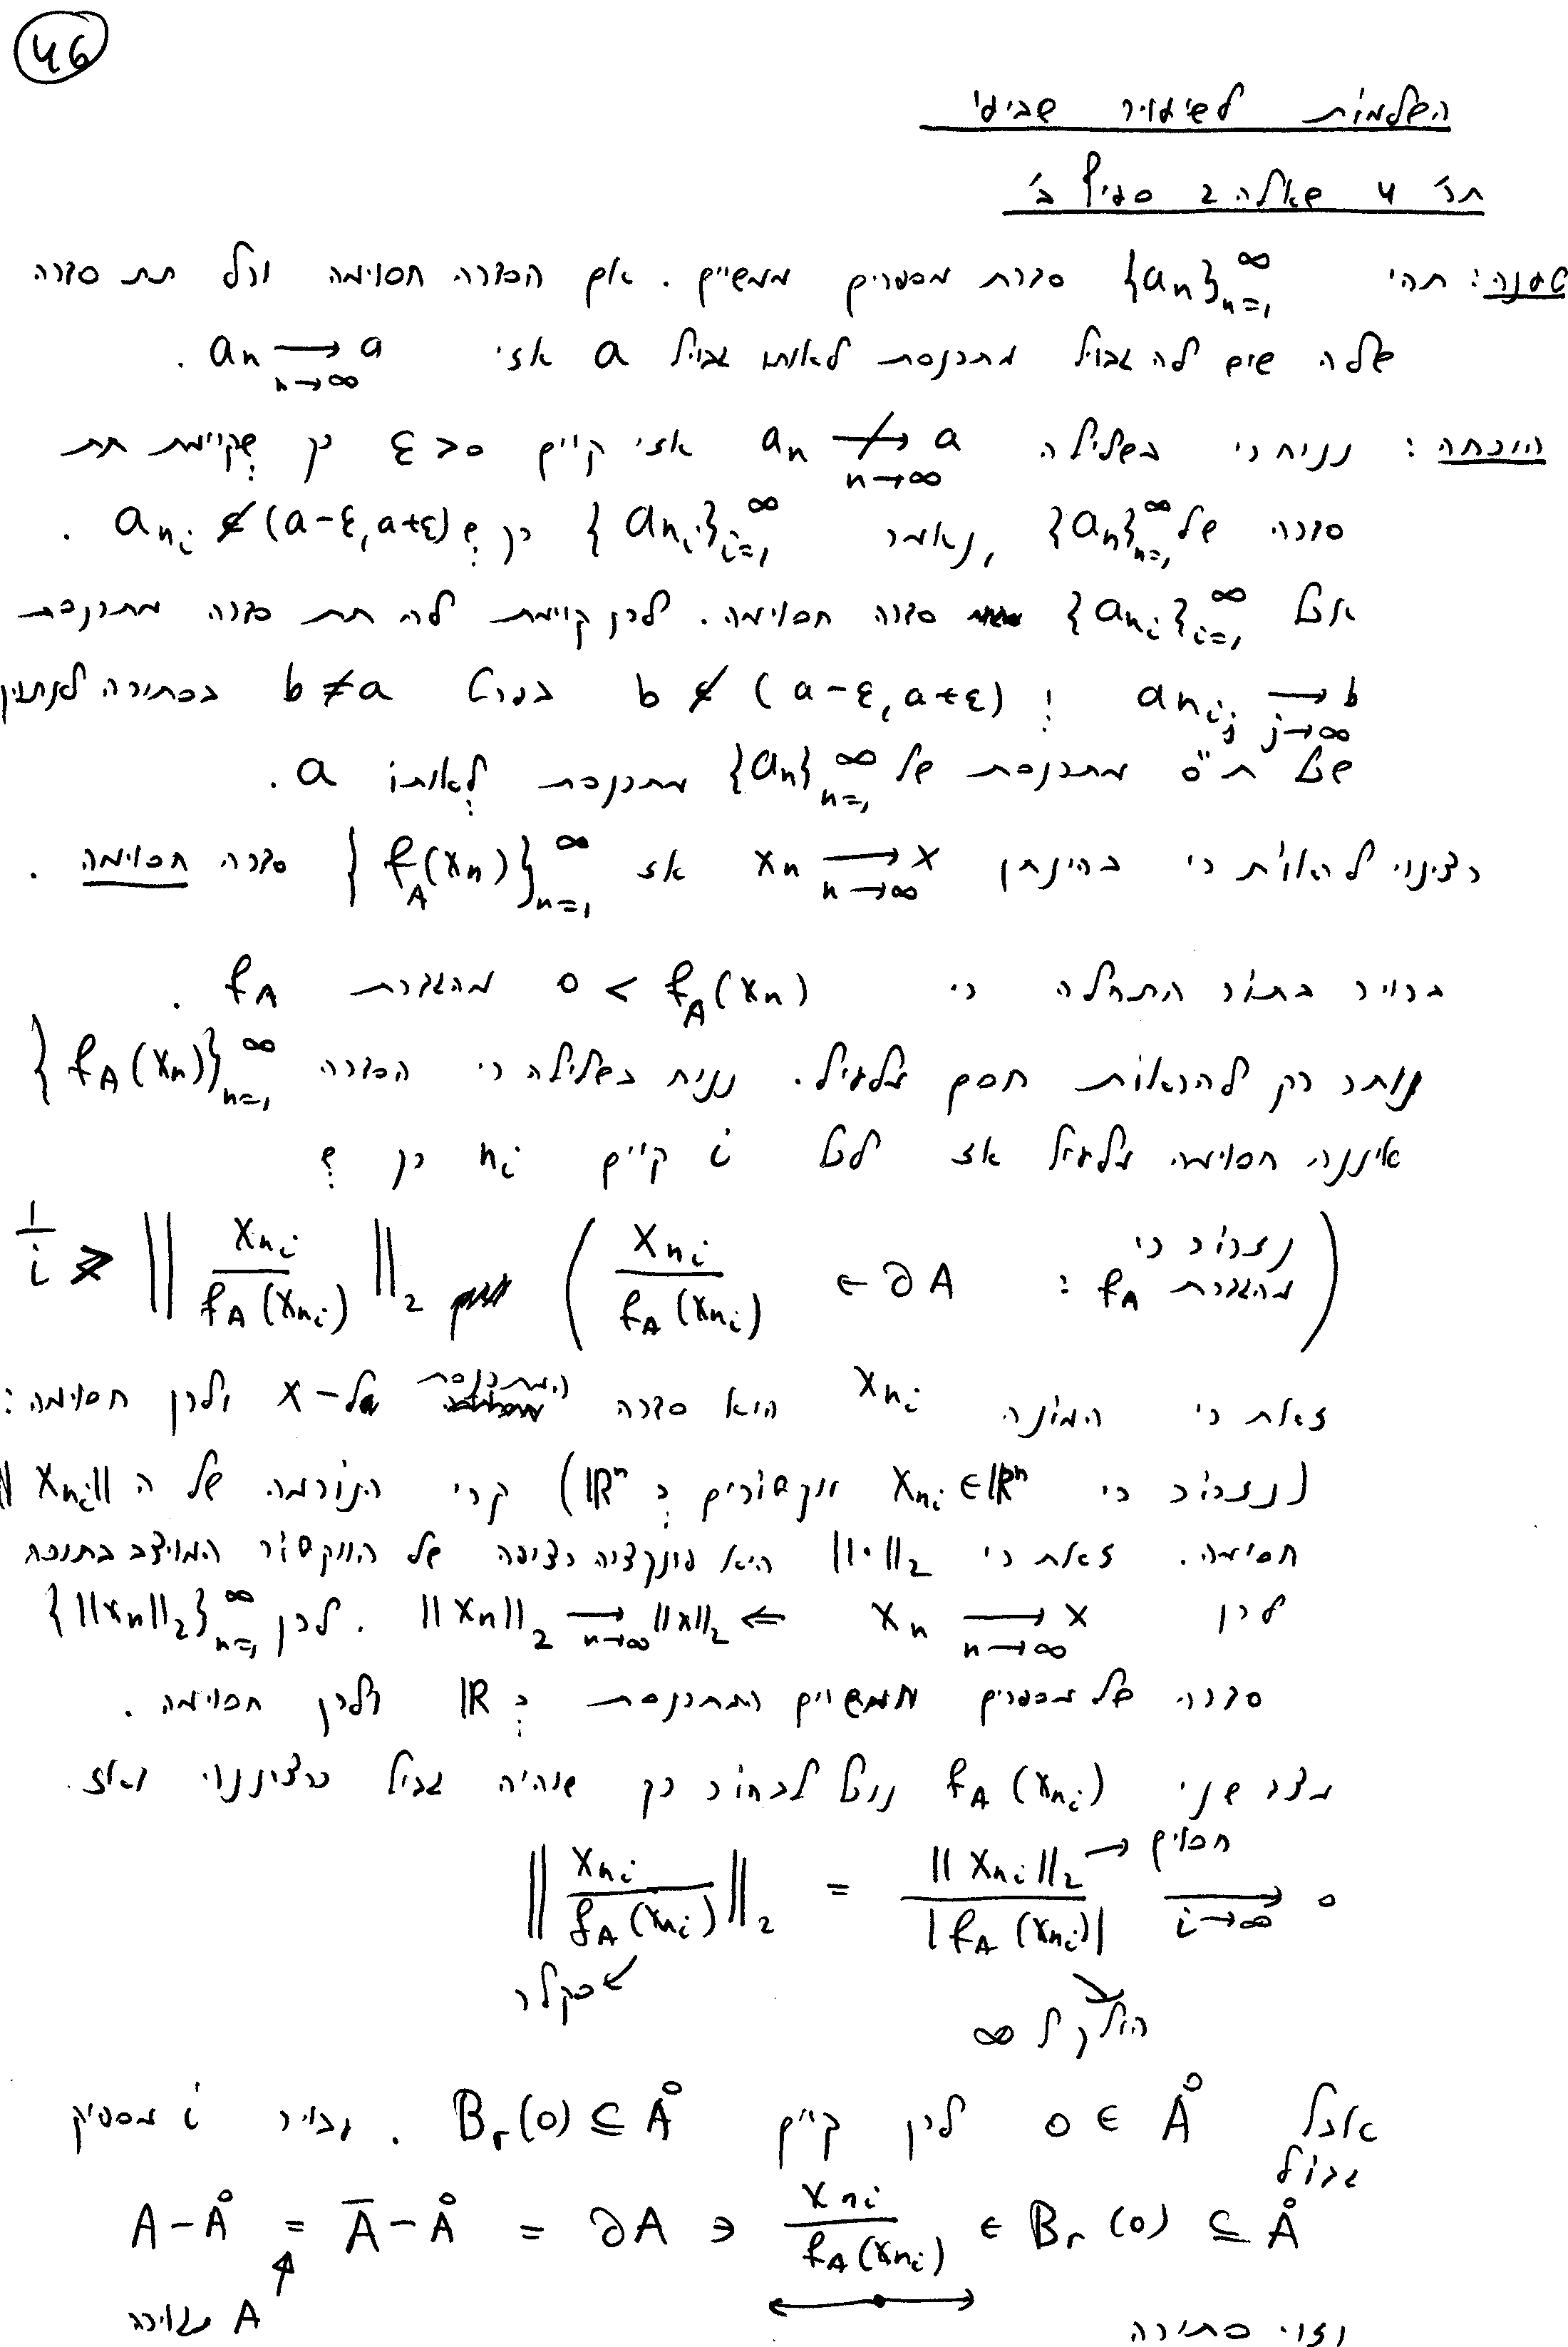 46
השלמות לשיעור שביעי
תר' 4 שאלה 2 סעיף ב'
טענה: תהי $\{a_n\}_{n=1}^{\infty}$ סדרת מספרים ממשיים. אם הסדרה חסומה וכל תת סדרה
שלה שיש לה גבול מתכנסת לאותו גבול a אזי $a_n \xrightarrow[n\to\infty]{} a$.
הוכחה: נניח כי בשלילה $a_n \not\xrightarrow[n\to\infty]{} a$ אזי קיים $0<\varepsilon$ כך שקיימת תת
סדרה של $\{a_n\}_{n=1}^{\infty}$, נאמר $\{a_{n_i}\}_{i=1}^{\infty}$ כך ש $a_{n_i} \notin (a-\varepsilon, a+\varepsilon)$.
אבל $\{a_{n_i}\}_{i=1}^{\infty}$ סדרה חסומה. לכן קיימת לה תת סדרה מתכנסת
$a_{n_{i_j}} \xrightarrow[j\to\infty]{} b$ ו $b \notin (a-\varepsilon, a+\varepsilon)$ בפרט $b \neq a$ בסתירה לנתון
שכל ת"ס מתכנסת של $\{a_n\}_{n=1}^{\infty}$ מתכנסת לאותו a.
רצינוי להראות כי בהינתן $x_n \xrightarrow[n\to\infty]{} x$ אז $\{f_A(x_n)\}_{n=1}^{\infty}$ סדרה חסומה.
ברור בתור התחלה כי $0 < f_A(x_n)$ מהגדרת $f_A$.
נותר רק להראות חסם מלעיל. נניח בשלילה כי הסדרה $\{f_A(x_n)\}_{n=1}^{\infty}$
איננה חסומה מלעיל אז לכל i קיים $n_i$ כך ש
$\frac{1}{i} \geq \left\|\frac{x_{n_i}}{f_A(x_{n_i})}\right\|_2$ (נזכור כי מהגדרת $f_A$: $\frac{x_{n_i}}{f_A(x_{n_i})} \in \partial A$)
זאת כי המונה $x_{n_i}$ היא סדרה המתכנסת ל-x ולכן חסומה:
(נזכור כי $x_{n_i} \in \mathbb{R}^n$ ווקטורים ב $\mathbb{R}^n$) קרי הנורמה של ה $\|x_{n_i}\|$
חסומה. זאת כי $\|\cdot\|_2$ היא פונקציה רציפה של הווקטור המוצב בתוכה
לכן $x_n \xrightarrow[n\to\infty]{} x \Rightarrow \|x_n\|_2 \xrightarrow[n\to\infty]{} \|x\|_2$. לכן $\{\|x_n\|_2\}_{n=1}^{\infty}$
סדרה של מספרים ממשיים המתכנסת ב $\mathbb{R}$ ולכן חסומה.
מצד שני $f_A(x_{n_i})$ נוכל לבחור כך שיהיה גדול כרצוננו ואז
$\left\|\frac{x_{n_i}}{f_A(x_{n_i})}\right\|_2 = \frac{\|x_{n_i}\|_2}{|f_A(x_{n_i})|} \xrightarrow[i\to\infty]{} 0$
→ חסום
סקלר
הולך ל ∞
אבל $0 \in \mathring{A}$ לכן קיים $B_r(0) \subseteq \mathring{A}$. עבור i מספיק
גדול
$A - \mathring{A} = \bar{A} - \mathring{A} = \partial A \ni \frac{x_{n_i}}{f_A(x_{n_i})} \in B_r(0) \subseteq \mathring{A}$
A סגורה
וזוי סתירה